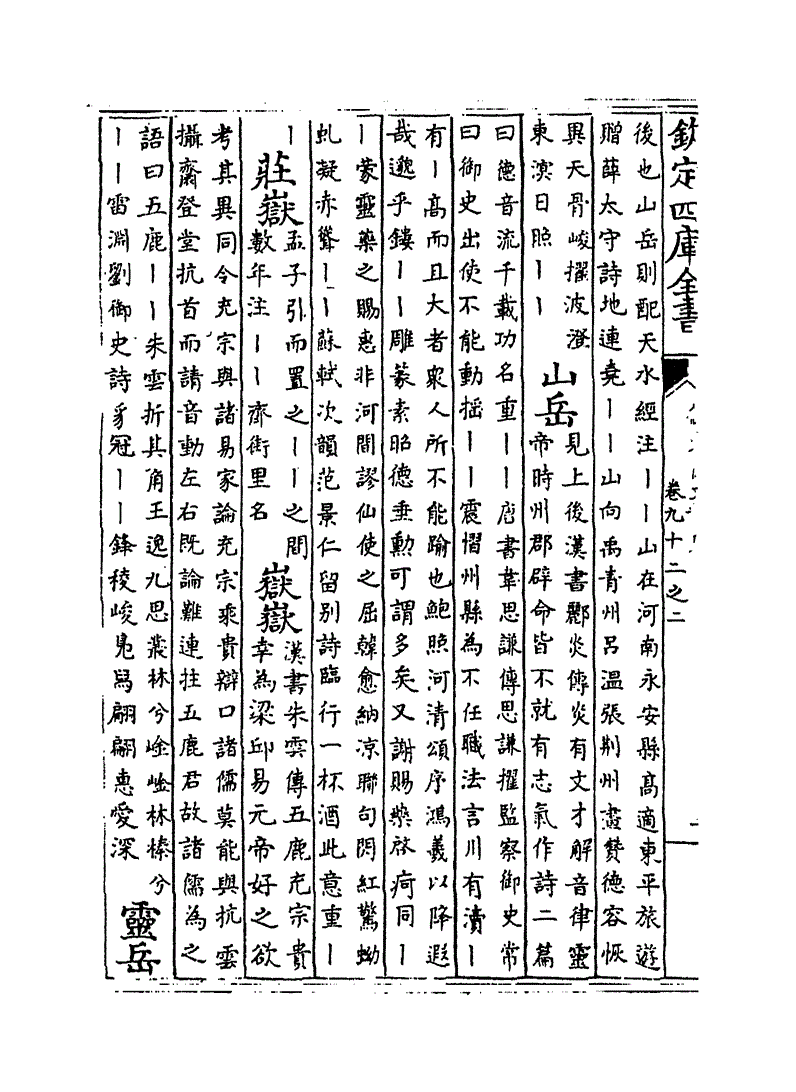 欽定四庫全書
卷九十二之二
後也山岳則配天水經注丨丨山在河南永安縣高適東平旅遊
贈薛太守詩地連堯丨丨山向禹青州呂溫張荆州畫贊德容恢
異天骨峻擢波澄
東溟日照丨丨
山岳
見上後漢書酈炎傳炎有文才解音律靈
帝時州郡辟命皆不就有志氣作詩二篇
曰德音流千載功名重丨丨唐書韋思謙傳思謙擢監察御史常
曰御史出使不能動揺丨丨震慴州縣為不任職法言川有瀆丨
有丨高而且大者衆人所不能踰也鮑照河清頌序鴻羲以降遐
哉邈乎鏤丨丨雕篆素昭德垂勲可謂多矣又謝賜藥啓疴同丨
丨蒙靈藥之賜惠非河間謬仙使之屈韓愈納凉聯句閃紅驚蚴
虬凝赤聳丨丨蘇軾次韻范景仁留别詩臨行一杯酒此意重丨
丨
莊嶽
孟子引而置之丨丨之間
數年注丨丨齊街里名
嶽嶽
漢書朱雲傳五鹿充宗貴
幸為梁邱易元帝好之欲
考其異同令充宗與諸易家論充宗乘貴辯口諸儒莫能與抗雲
攝齋登堂抗首而請音動左右既論難連拄五鹿君故諸儒為之
語曰五鹿丨丨朱雲折其角王逸九思叢林兮崯崯林榛兮
丨丨雷淵劉御史詩豸冠丨丨鋒稜峻鳬舄翩翩惠愛深
靈岳